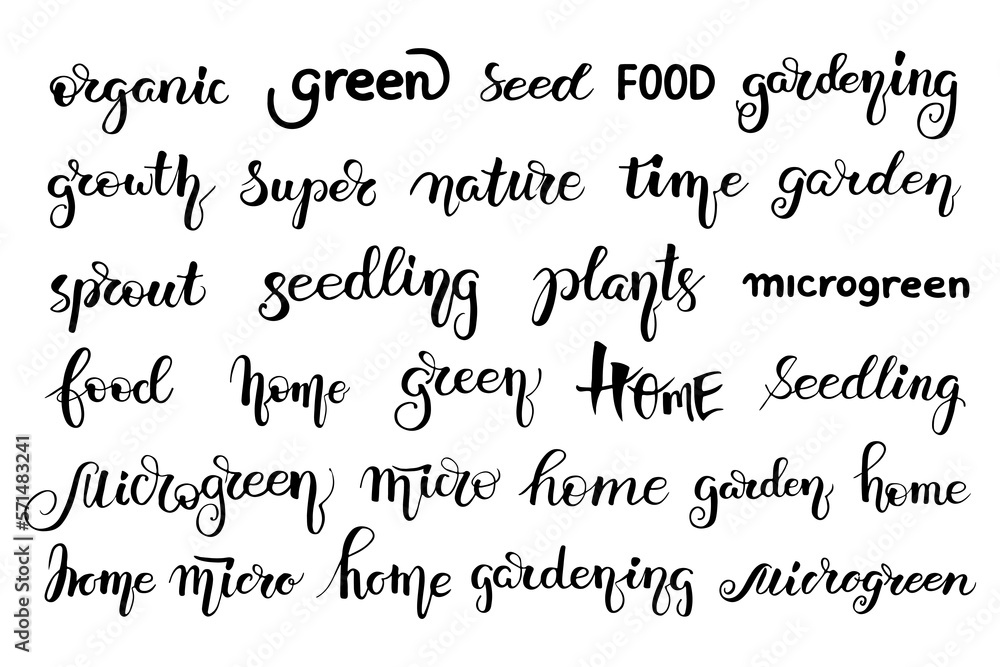 organic green Seed FOOD gardening
growth super nature time garden
sprout seedling plants microgreen
food home green HOME Seedling
Microgreen micro home garden home
home micro home gardening Microgreen
Adobe Stock | #571483241